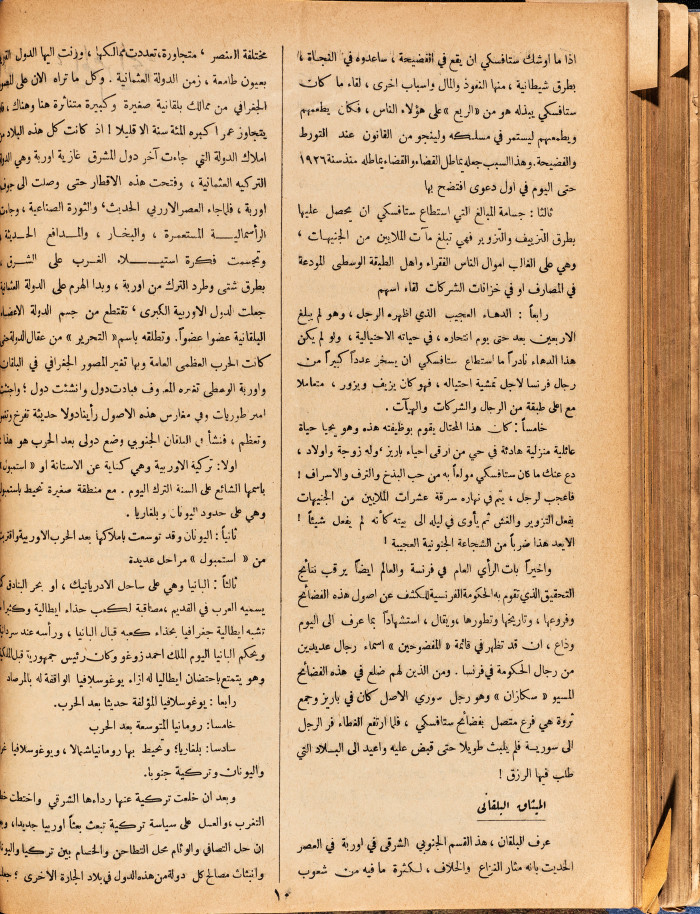 اذا ما اوشك ستافسكي ان يقع في الفضيحة ، ساعدوه في النجاة ،
بطرق شيطانية ، منها النفوذ والمال واسباب اخرى ، لقاء ما كان
ستافسكي يبذله هو من «الريع» على هؤلاء الناس ، فكان يطعمهم
ويطعمهم ليستمر في مسلكه ولينجو من القانون عند التورط
والفضيحة. وهذا السبب جعله يماطل القضاء والقضاء يماطله منذ سنة ١٩٢٦
حتى اليوم في اول دعوى افتضح بها
ثالثا : جسامة المبالغ التي استطاع ستافسكي ان يحصل عليها
بطرق التزييف والتزوير فهي تبلغ مآت الملايين من الجنيهات ،
وهي على الغالب اموال الناس الفقراء واهل الطبقة الوسطى المودعة
في المصارف او في خزانات الشركات لقاء اسهم
رابعاً : الدهاء العجيب الذي اظهره الرجل ، وهو لم يبلغ
الاربعين بعد حتى يوم انتحاره ، في حياته الاحتيالية ، ولو لم يكن
هذا الدهاء نادراً ما استطاع ستافسكي ان يسخر عدداً كبيراً من
رجال فرنسا لاجل تمشية احتياله ، فهو كان يزيف ويزور ، متعاملا
مع اعلى طبقة من الرجال والشركات والهيآت .
خامساً : كان هذا المحتال يقوم بوظيفته هذه وهو يحيا حياة
عائلية منزلية هادئة في حي من ارقى احياء باريز ، وله زوجة واولاد ،
دع عنك ما كان ستافسكي مولعاً به من حب البذخ والترف والاسراف !
فاعجب لرجل ، يتم في نهاره سرقة عشرات الملايين من الجنيهات
بفعل التزوير والغش ثم يأوى في ليله الى بيته كأنه لم يفعل شيئاً !
الا يعد هذا ضرباً من الشجاعة الجنونية العجيبة !
واخيراً بات الرأي العام في فرنسة والعالم ايضاً يرقب نتائج
التحقيق الذي تقوم به الحكومة الفرنسية للكشف عن اصول هذه الفضائح
وفروعها ، وتاريخها وتطورها ، ويقال ، استشهاداً بما عرف الى اليوم
وذاع ، ان قد تظهر في قائمة «المفضوحين» اسماء رجال عديدين
من رجال الحكومة في فرنسا . ومن الذين لهم ضلع في هذه الفضائح
المسيو « سكازان » وهو رجل سوري الاصل كان في باريز وجمع
ثروة هي فرع متصل بفضائح ستافسكي ، فلما ارتفع الغطاء فر الرجل
الى سورية فلم يلبث طويلا حتى قبض عليه واعيد الى البلاد التي
طلب فيها الرزق !
الميثاق البلقاني
عرف البلقان ، هذا القسم الجنوبي الشرقي في اوربة في العصر
الحديث بانه مثار النزاع والخلاف ، لكثرة ما فيه من شعوب
مختلفة العنصر ، متجاورة، تعددت ممالكها ، ورنت اليها الدول
بعيون طامعة ، زمن الدولة العثمانية . وكل ما تراه الان على
الجغرافي من ممالك بلقانية صغيرة وكبيرة متناثرة هنا وهناك ،
يتجاوز عمر اكبره المئة سنة الا قليلا ! اذ كانت كل هذه البلاد من
املاك الدولة التي جاءت آخر دول المشرق غازية اوربة وهي
التركيه العثمانية ، وفتحت هذه الاقطار حتى وصلت الى جوف
اوربة ، فلما جاء العصر الاوربي الحديث، والثورة الصناعية ، وجاءت
الرأسمالية المستعمرة ، والبخار ، والمدافع الحديثة ،
وتجسمت فكرة استيلاء الغرب على الشرق ،
بطرق شتى وطرد الترك من اوربة ، وبدا الهرم على الدولة العثمانية
جعلت الدول الاوربية الكبرى ، تقتطع من جسم الدولة الاعضاء
البلقانية عضوا عضواً. وتطلقه باسم «التحرير» من عقال الدولة حتى
كانت الحرب العظمى العامة وبها تغير المصور الجغرافي في البلقان
واوربة الوسطى تغيره المعروف فبادت دول وانشئت دول ؛
امبراطوريات وفي مغارس هذه الاصول رأينا دولا حديثة تفرخ
وتعظم ، فنشأ في البلقان الجنوبي وضع دولى بعد الحرب هو هذا :
اولا: تركية الاوربية وهي كناية عن الاستانة او « استمبول »
باسمها الشائع على السنة الترك اليوم . مع منطقة صغيرة تحيط باستمبول
وهي على حدود اليونان وبلغاريا .
ثانياً : اليونان وقد توسعت باملاكها بعد الحرب الاوربية
من « استمبول » مراحل عديدة
ثالثاً : البانيا وهي على ساحل الادرياتيك ، او بحر البنادق
يسميه العرب في القديم ، مصاقبة لكعب حذاء ايطالية
تشبه ايطالية جغرافيا بحذاء كعبه قبال البانيا ، ورأسه عند
ويحكم البانيا اليوم الملك احمد زوغو وكان رئيس جمهورية قبل
وهو يتمتع باحتضان ايطاليا له ازاء يوغوسلافيا الواقفة له بالمرصاد
رابعا : يوغوسلافيا المؤلفة حديثا بعد الحرب.
خامسا : رومانيا المتوسعة بعد الحرب
سادسا : بلغاريا؛ وتحيط بها رومانيا شمالا ، ويوغوسلافيا
واليونان وتركية جنوبا.
وبعد ان خلعت تركية عنها رداءها الشرقي واختطت
التغرب ، والعمل على سياسة تركية تبعث بعثا اوربيا جديدا،
ان حل التصافي والوئام محل التطاحن والخصام بين تركيا
وانبثاث مصالح كل دولة من هذه الدول في بلاد الجارة الاخرى ؛
١٠